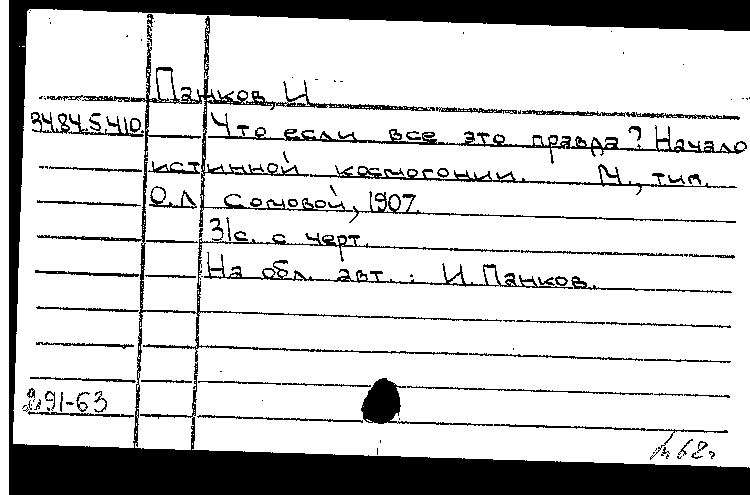 Панков, И
34.84.5.410. Что если все это правда? Начало
истинной космогонии. М., тип.
О.Л Сомовой, 1907.
31с. с черт.
На обл. авт.: И. Панков.
91-63